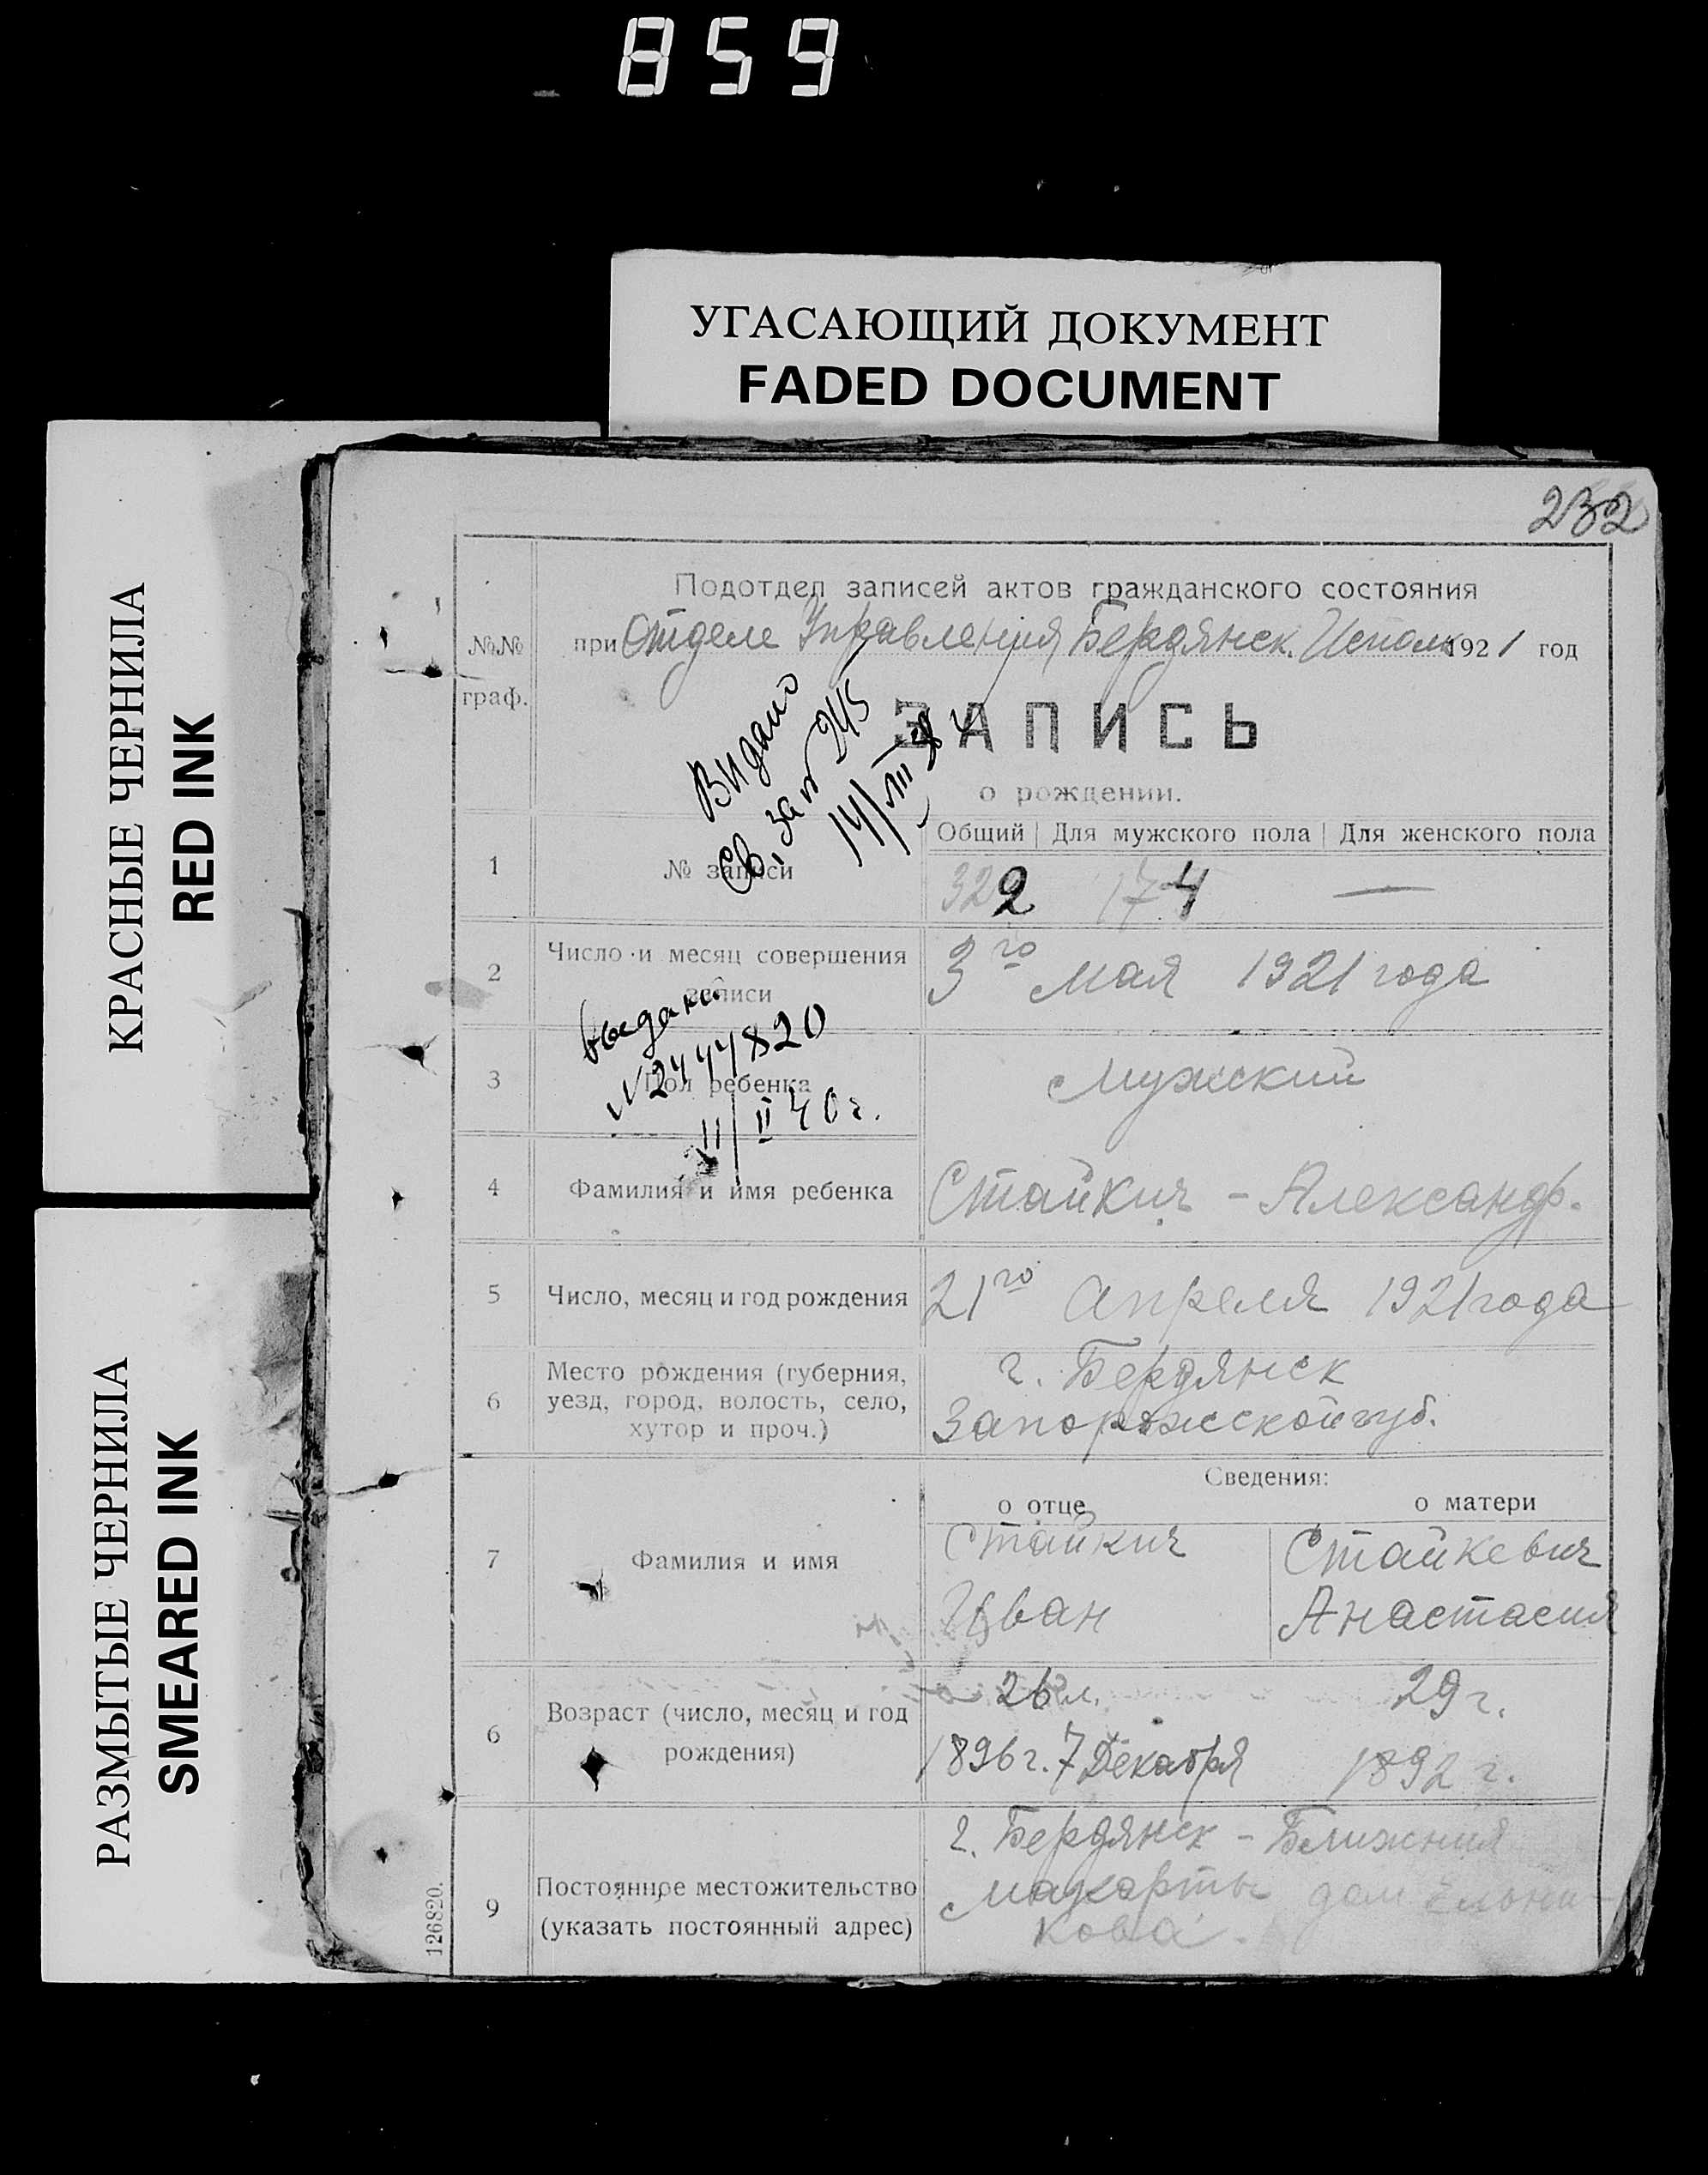 859
УГАСАЮЩИЙ ДОКУМЕНТ
FADED DOCUMENT
КРАСНЫЕ ЧЕРНИЛА
RED INK
РАЗМЫТЫЕ ЧЕРНИЛА
SMEARED INK
232
Подотдел записей актов гражданского состояния
№№ граф.
при Отделе Управления Бердянск. Исполк 1921 год
ЗАПИСЬ
о рождении.
Видано
Св. за № 245
14/VIII
Общий | Для мужского пола | Для женского пола
1 № записи 322 174 —
2 Число и месяц совершения записи
3го мая 1921 года
выдано
№2444820
11/II 40 г.
3 Пол ребенка
Мужский
4 Фамилия и имя ребенка
Стайкич - Александр.
5 Число, месяц и год рождения
21го апреля 1921 года
6 Место рождения (губерния,
уезд, город, волость, село,
хутор и проч.)
г. Бердянск
Запорожской губ.
Сведения:
о отце о матери
7 Фамилия и имя
Стайкич Стайкевич
Иван Анастасия
6 Возраст (число, месяц и год
рождения)
26 л. 29 г.
1896 г. 7 Декабря 1892 г.
9 Постоянное местожительство
(указать постоянный адрес)
г. Бердянск - Ближния
Макорты дом
кова.
126820.